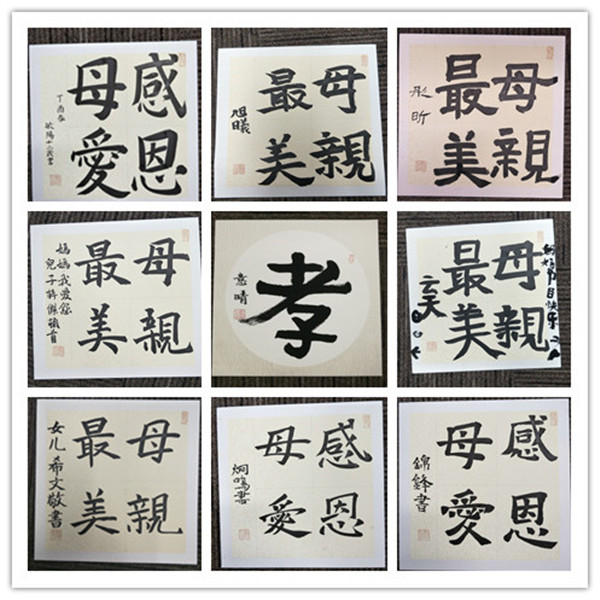 感恩
母愛
丁酉春
母親
最美
旭曦
母親
最美
彤昕
母親
最美
媽媽我愛您
孝
意晴
母親
最美
節日快乐
云天
母親
最美
女儿希文敬書
感恩
母愛
炯鳴書
感恩
母愛
錦鋒書